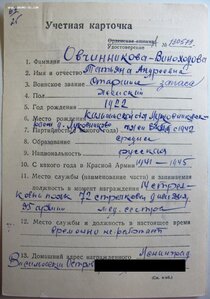 Учетная карточка
Орденская книжка
Удостоверение № 100579
1. Фамилия Овчинникова-Виноходова
2. Имя и отчество Татьяна Андреевна
3. Воинское звание Старшина запаса
4. Пол Женский
5. Год рождения 1922
6. Место рождения
7. Партийность
8. Образование среднее
9. Национальность русская
10. С какого года в Красной Армии 1941 — 1945
11. Место службы (наименование части) и занимаемая
должность в момент награждения 14 стрел-
ковый полк 72 стрелковая дивизия,
55 армии мед. сестра
12. Место службы и должность в настоящее время
временно не работает
13. Домашний адрес награжденного Ленинград
(См. н/об.)